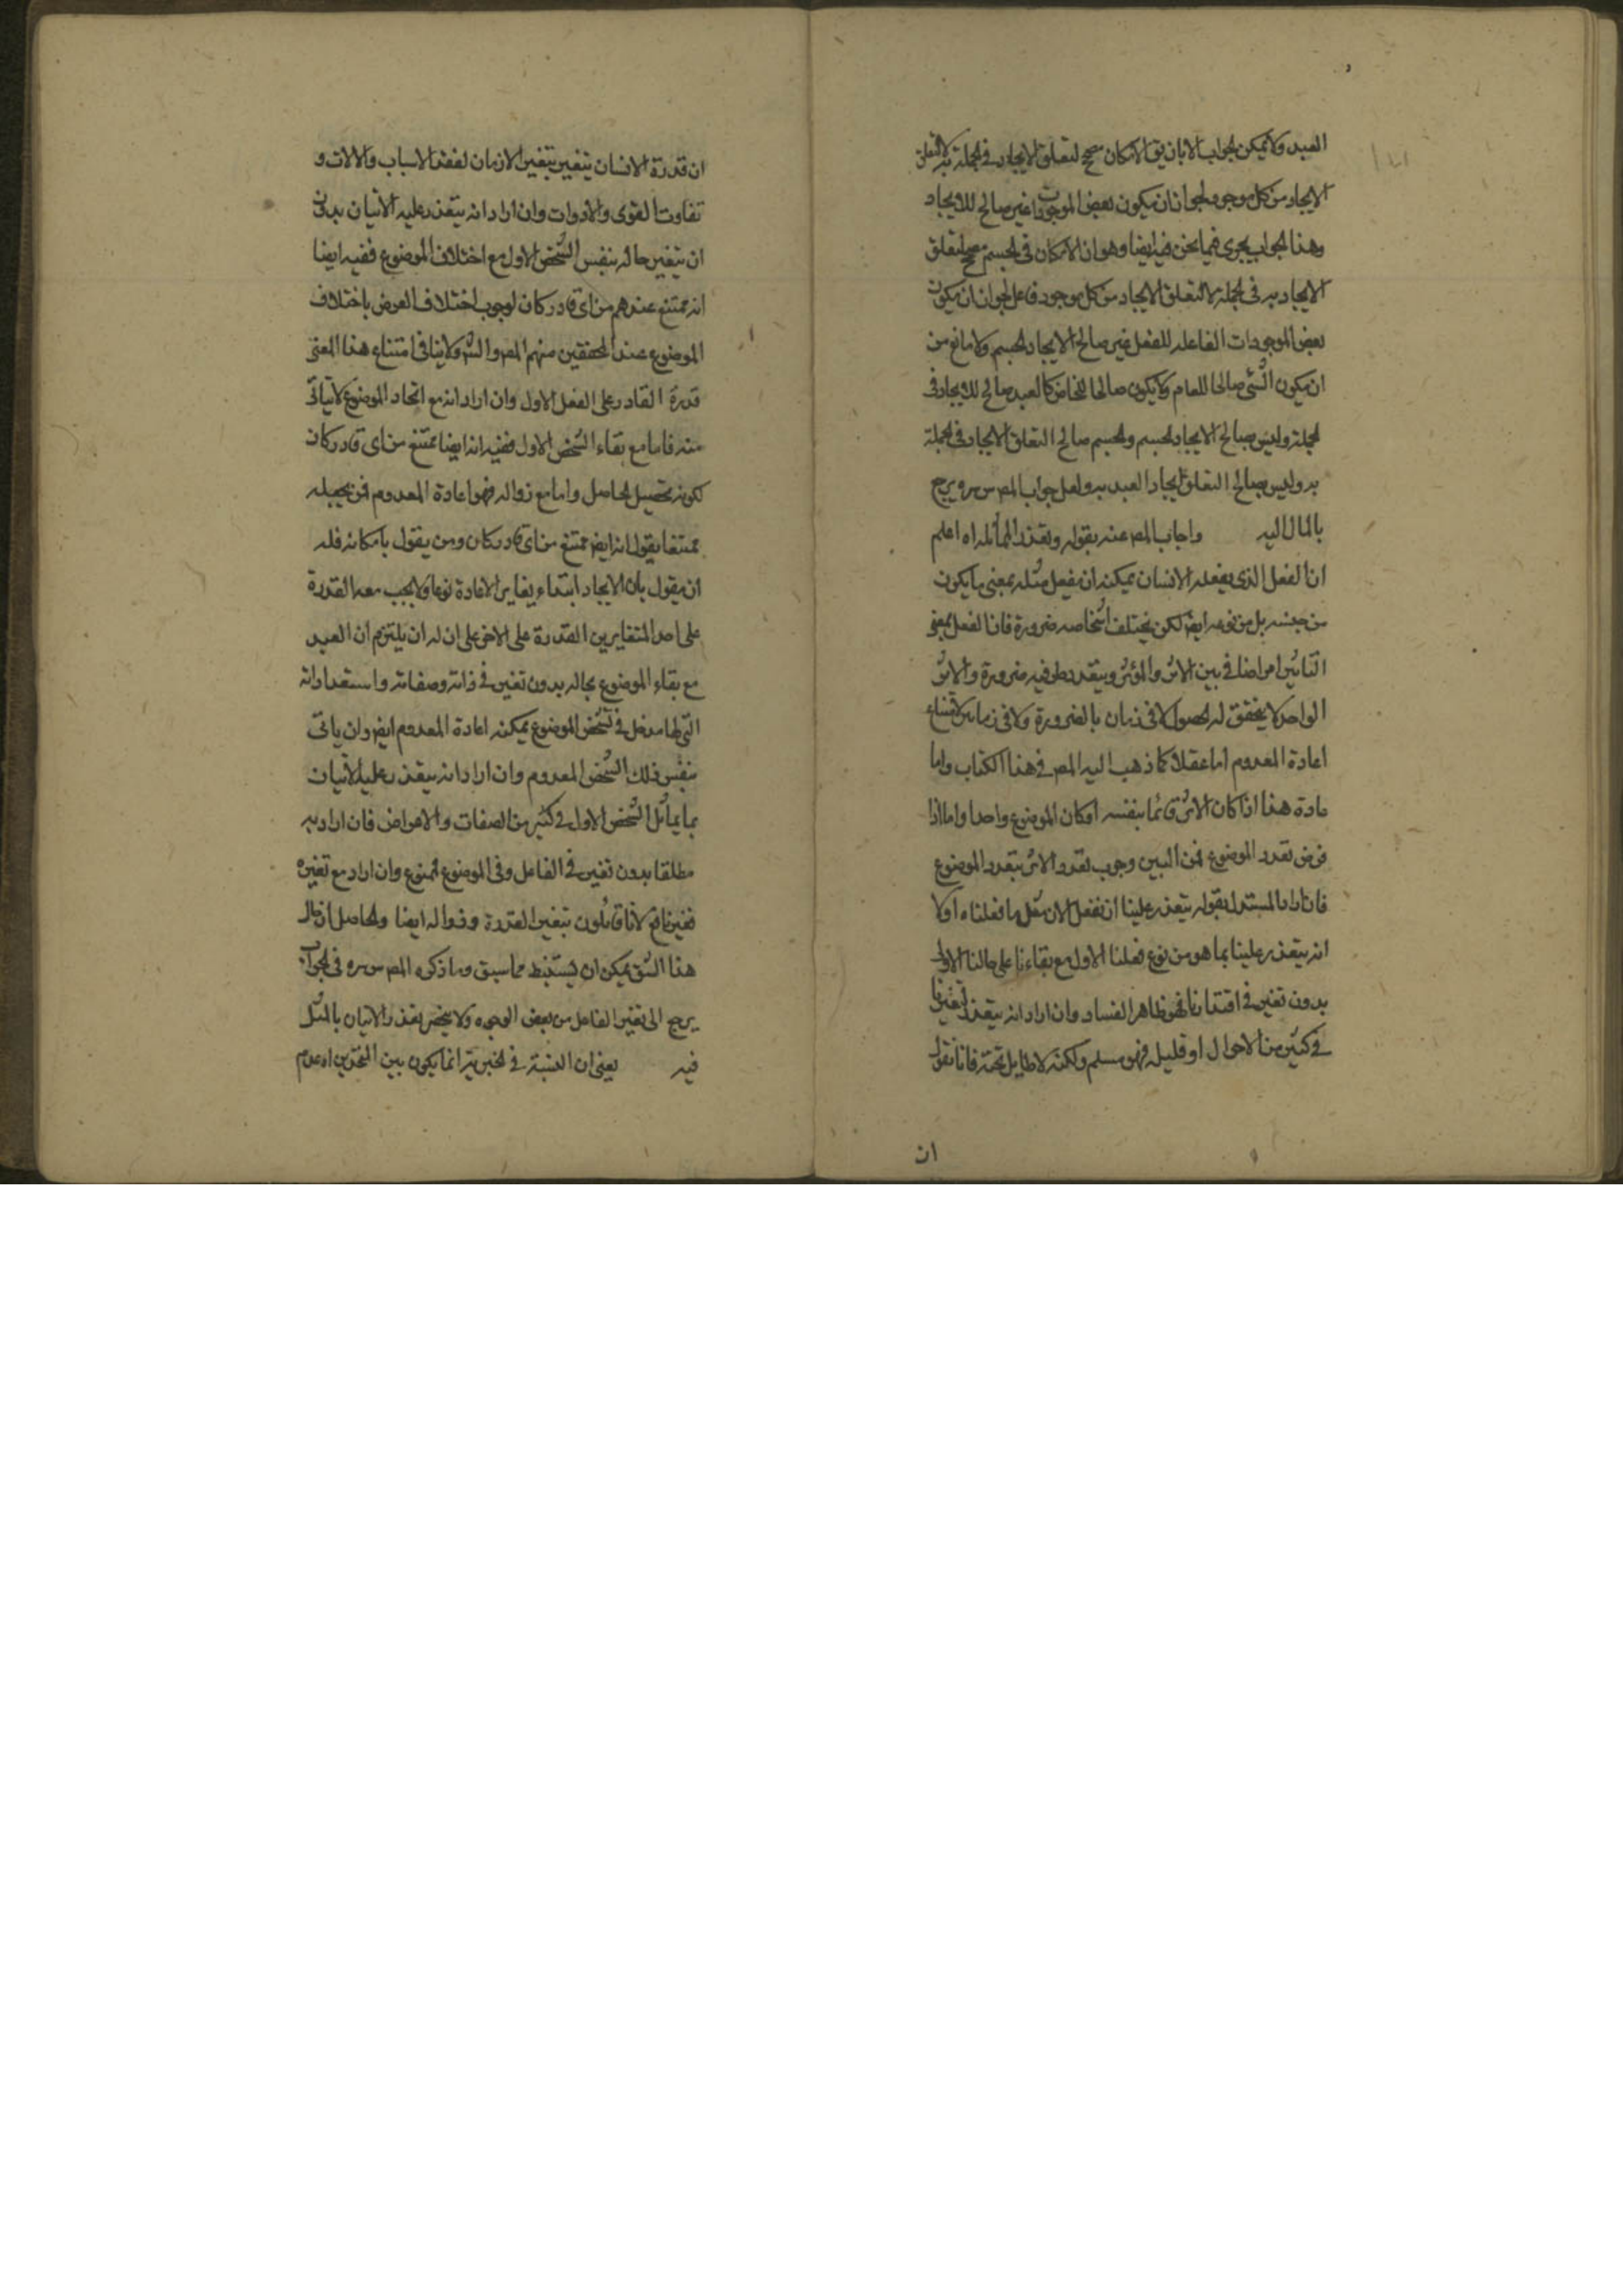 العبد ولا يمكن الجواب الا بان يق الامكان مصحح لتعلق الايجاد في الجملة به لا لتعلق
الايجاد من كل موجود لجواز ان يكون بعض الموجودات غير صالح للايجاد
وهذا الجواب يجري فيما نحن فيه ايضا وهو ان الامكان في الجسم مصحح لتعلق
الايجاد به في الجملة لا لتعلق الايجاد من كل موجود فاعل لجواز ان يكون
بعض الموجودات الفاعلة للفعل غير صالح لايجاد الجسم ولا مانع من
ان يكون الشئ صالحا للعام ولا يكون صالحا للخاص كالعبد صالح للايجاد في
الجملة وليس صالح لايجاد الجسم والجسم صالح لتعلق الايجاد في الجملة
به وليس صالح لتعلق ايجاد العبد به ولعل جواب المص س سره يرجع
بالمال اليه واجاب المص عنه بقوله وتعذر المماثلة اه اعلم
ان الفعل الذي يفعله الانسان يمكنه ان يفعل مثله بمعنى ما يكون
من جنسه بل من نوعه ايض لكن يختلف اشخاصه ضرورة فان الفعل بمعنى
التاثير امر اضافي بين الاثر والمؤثر ويتعدد طرفيه ضرورة والاثر
الواحد لا يتحقق له الحصول الا في زمان بالضرورة ولا في زمانين لامتناع
اعادة المعدوم اما عقلا كما ذهب اليه المص في هذا الكتاب واما
عادة هذا اذا كان الاثر قائما بنفسه او كان الموضوع واحدا واما اذا
فرض تعدد الموضوع فمن البين وجوب تعدد الاثر بتعدد الموضوع
فان اراد المستدل بقوله يتعذر علينا ان نفعل الان مثل ما فعلناه اولا
انه يتعذر علينا بما هو من نوع فعلنا الاول مع بقاءنا على حالنا الاولى
بدون تغير في اقتدارنا فهو ظاهر الفساد وان اراد انه يتعذر لتغيرنا
في كثير من الاحوال او قليل فهو مسلم ولكنه لا طايل تحته فانا نقول
ان
ان قدرة الانسان يتغير بتغير الازمان لفقد الاسباب والالات و
تفاوت القوى والادوات وان اراد انه يتعذر عليه الاتيان بدون
ان يتغير حاله بنفس الشخص الاول مع اختلاف الموضوع ففيه ايضا
انه ممتنع عندهم من اي قادر كان لوجوب اختلاف العرض باختلاف
الموضوع عند المحققين منهم المص والش ولا ينافي امتناع هذا المعنى
قدرة القادر على الفعل الاول وان اراد انه مع اتحاد الموضوع لا يتاتى
منه فاما مع بقاء الشخص الاول ففيه انه ايضا ممتنع من اي قادر كان
لكونه تحصيل الحاصل واما مع زواله فهو اعادة المعدوم فمن يجعله
ممتنعا يقول انه ايض ممتنع من اي قادر كان ومن يقول بامكانه فله
ان يقول بان الايجاد ابتداء يغاير الاعادة نوعا ولا يجب معه القدرة
على احد المتغايرين القدرة على الاخر على ان له ان يلتزم ان العبد
مع بقاء الموضوع بحاله بدون تغير في ذاته وصفاته واستعداداته
التي لها مدخل في تشخص الموضوع يمكنه اعادة المعدوم ايض وان ياتي
بنفس ذلك الشخص المعدوم وان اراد انه يتعذر عليه الاتيان
بما يماثل الشخص الاول في كثير من الصفات والاعراض فان اراد به
مطلقا بدون تغير في الفاعل وفي الموضوع فممنوع وان اراد مع تغيره
فغير نافع لانا قائلون بتغير القدرة وزواله ايضا والحاصل ان حال
هذا الشق يمكن ان يستنبط مما سبق وما ذكره المص س سره في الجواب
يرجع الى تغير الفاعل من بعض الوجوه ولا ينحصر تعذر الاتيان بالمثل
فيه يعني ان النسبة في الخبرية انما يكون بين المتحدين اه